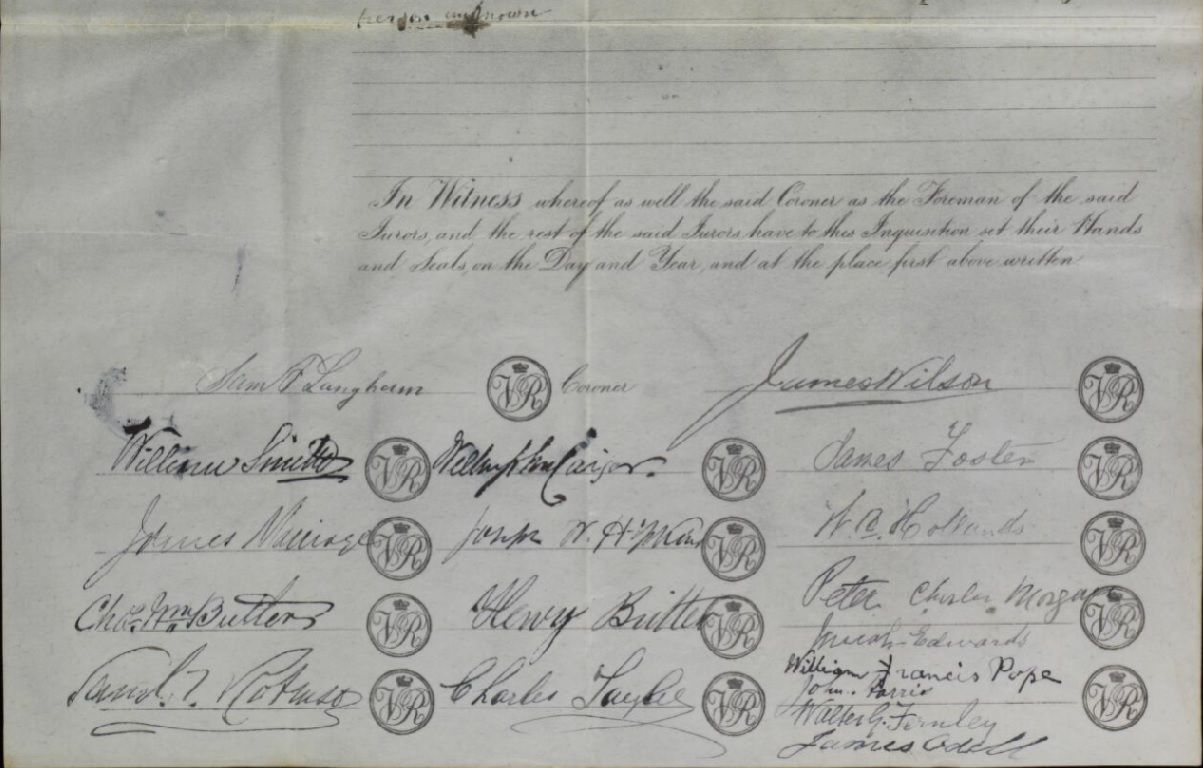 person unknown
In Witness whereof as well the said Coroner as the Foreman of the said
Jurors, and the rest of the said Jurors have to this Inquisition set their Hands
and Seals, on the Day and Year, and at the place first above written
Sam F Langham VR Coroner James Wilson VR
William Smith VR William VR James Foster VR
James VR Joseph W. Hopkins VR W. R. Hollands VR
Chas. Wm. Butters VR Henry VR Peter Charles Morgan VR
Josiah Edwards
William Francis Pope
Saml. VR Charles VR John. Parris VR
Walter G. Fernley
James Odell